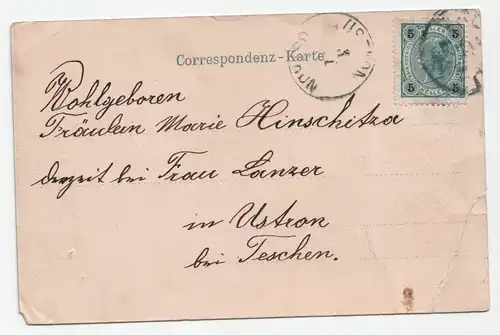 Correspondenz-Karte.
5 5
5 5
Wohlgeboren
Fräulein Marie Hinschitza
derzeit bei Frau Lanzer
in Ustron
bei Teschen.